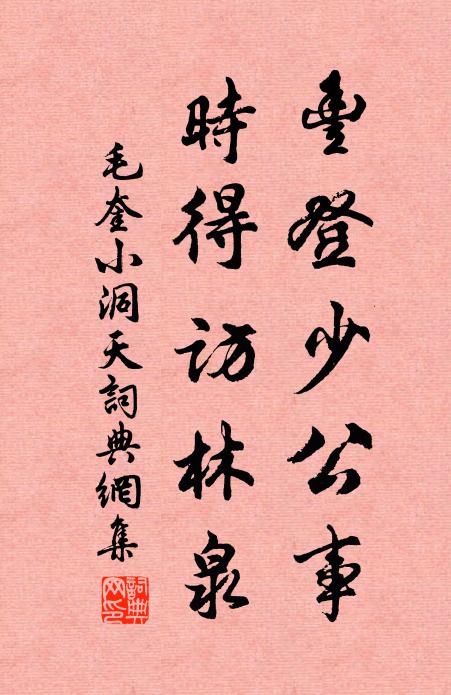 豊登少公事
時得訪林泉
毛奎小洞天詞典網集
詞典網印